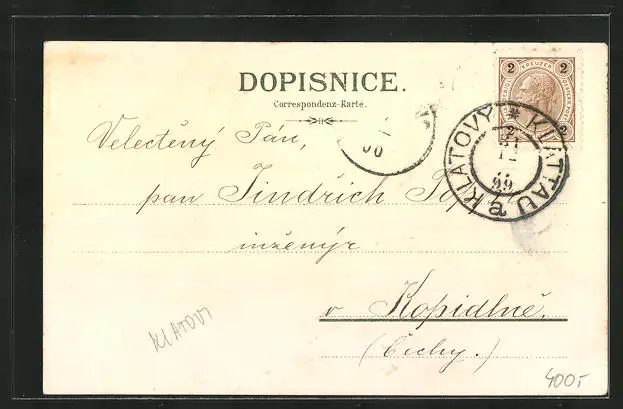 DOPISNICE.
Correspondenz-Karte.
2 KREUZER 2
2 2
KLATOVY * KLATTAU
a
99
00
Velectěný Pán,
pan Jindřich
inženýr
v Kopidlně.
(Čechy.)
KLATOVY
400,-